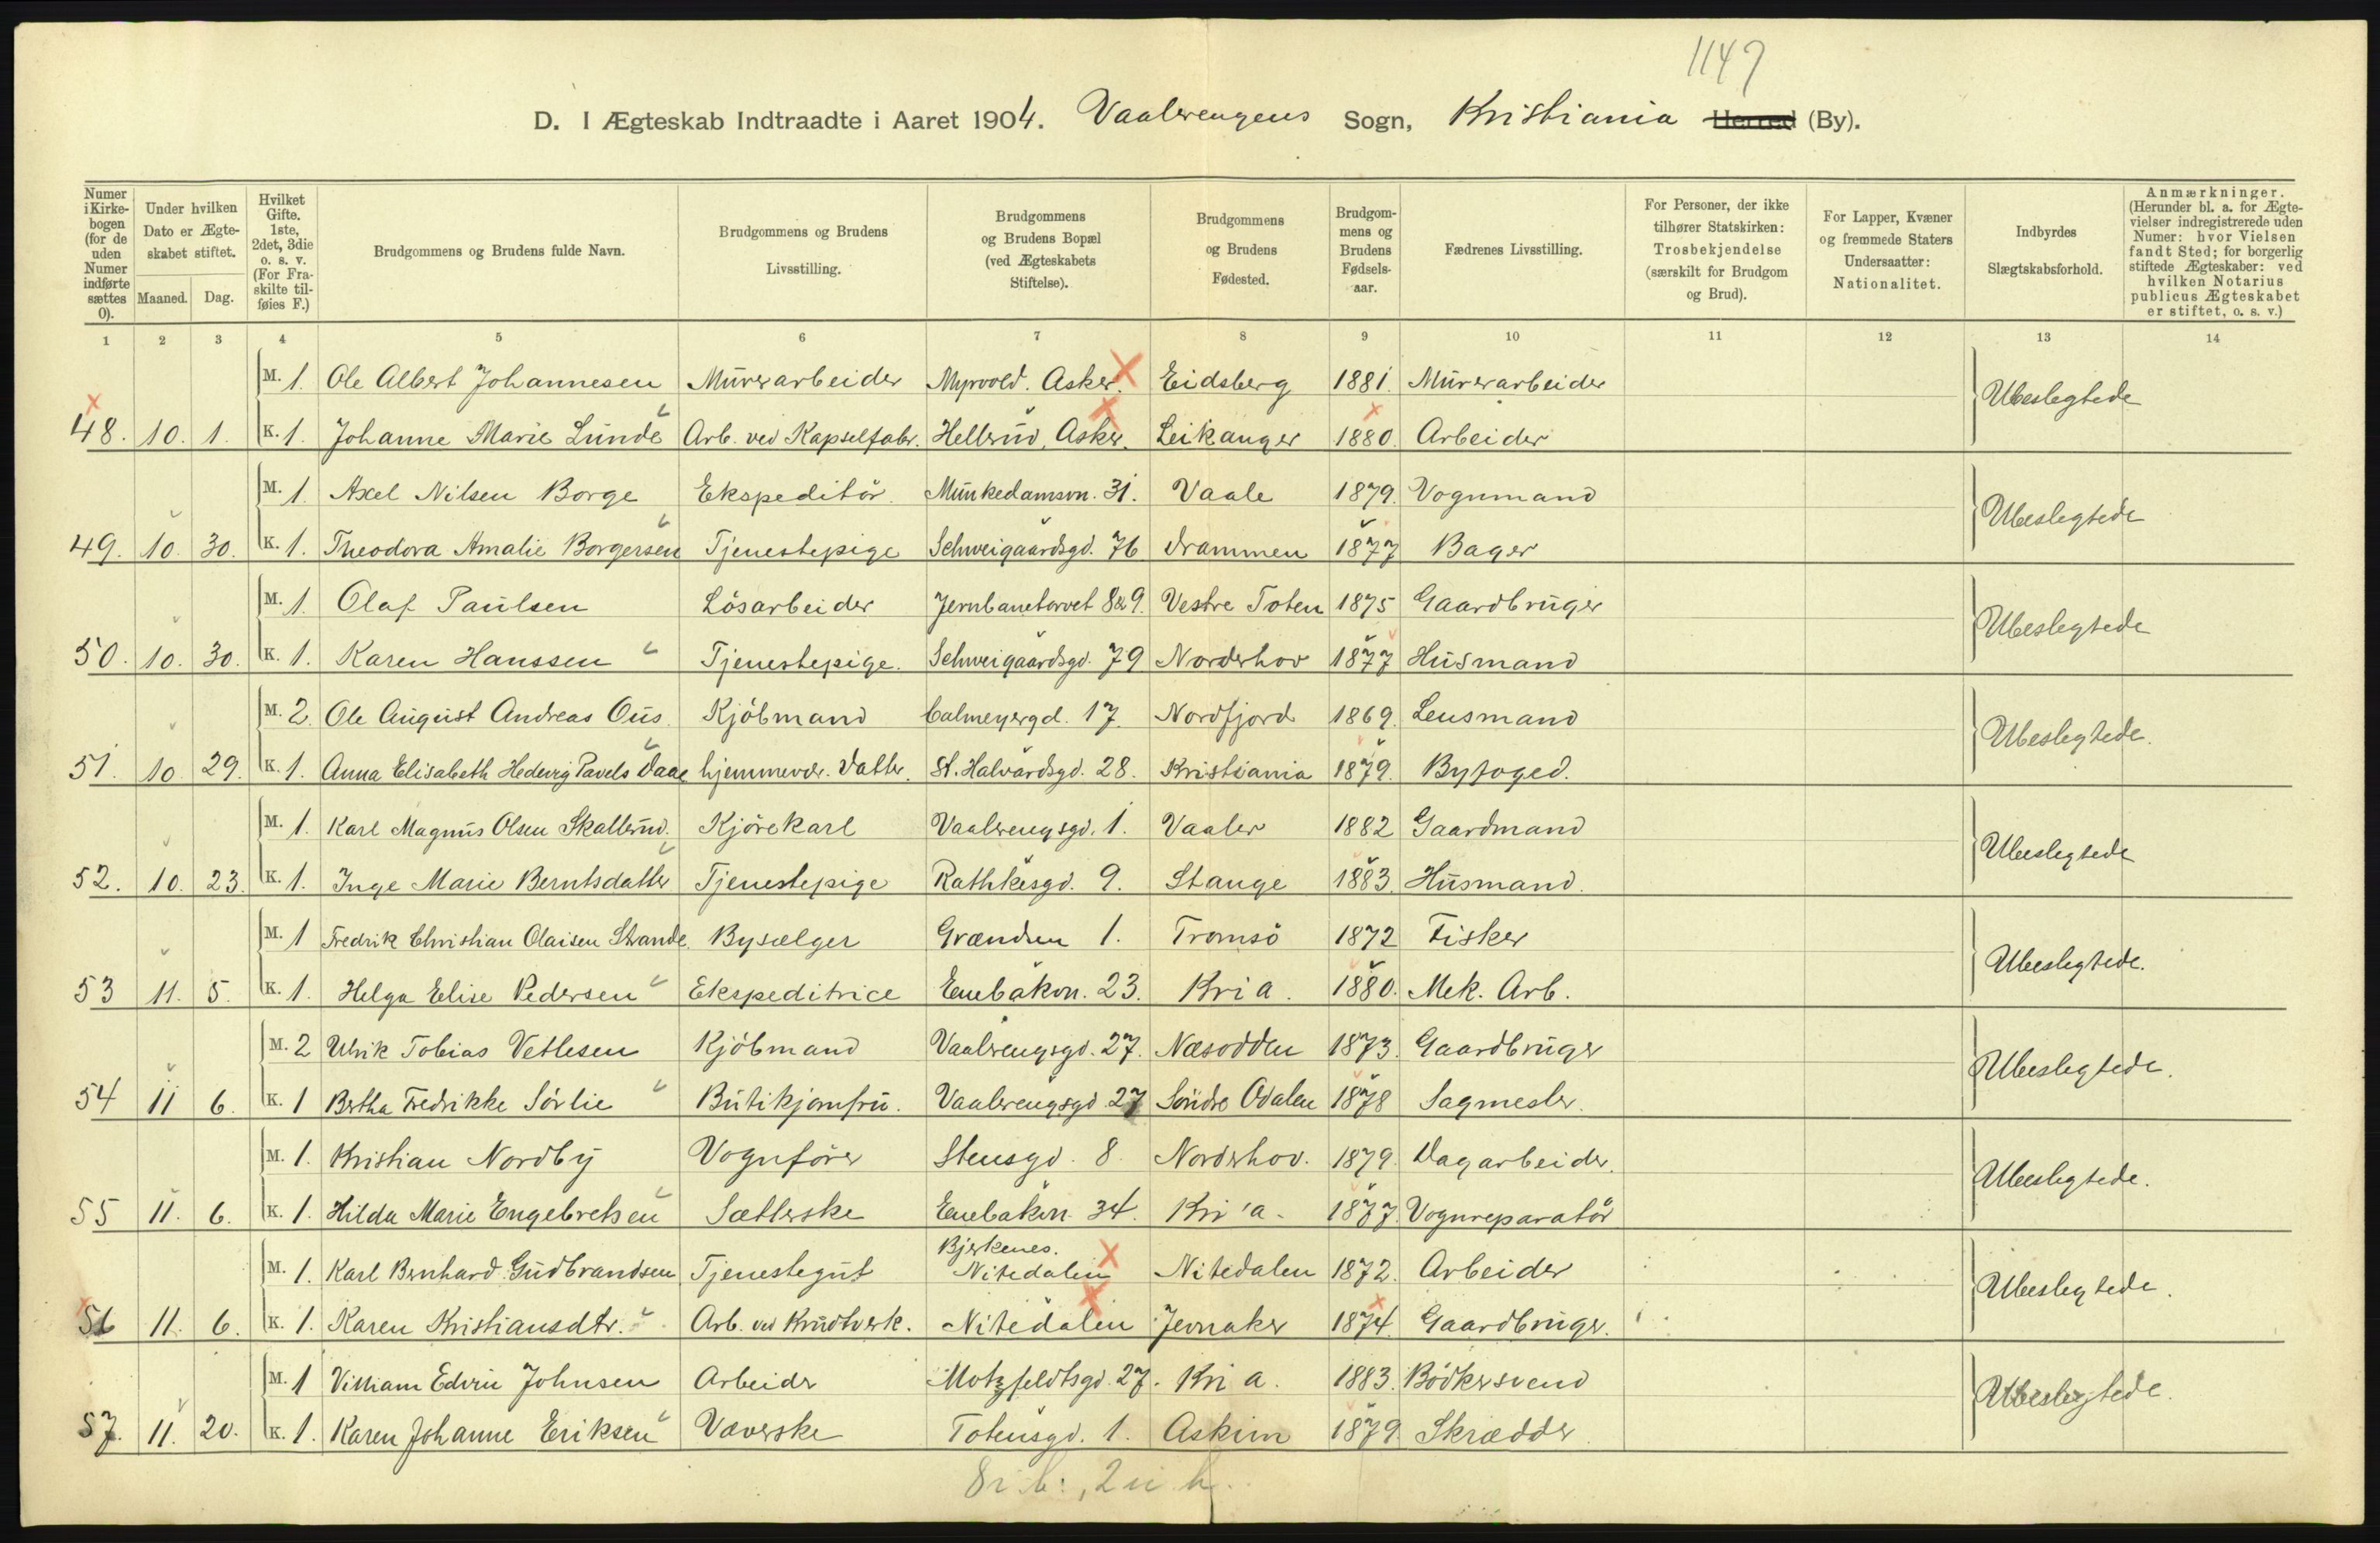 1147
D. I Ægteskab Indtraadte i Aaret 1904. Vaalerengens Sogn, Kristiania Herred (By).
Numer i Kirkebogen (for de uden Numer indførte sættes 0).
Under hvilken Dato er Ægteskabet stiftet.
Maaned. Dag.
Hvilket Gifte. 1ste, 2det, 3die o. s. v. (For Fraskilte tilføies F.)
Brudgommens og Brudens fulde Navn.
Brudgommens og Brudens Livsstilling.
Brudgommens og Brudens Bopæl (ved Ægteskabets Stiftelse).
Brudgommens og Brudens Fødested.
Brudgommens og Brudens Fødselsaar.
Fædrenes Livsstilling.
For Personer, der ikke tilhører Statskirken: Trosbekjendelse (særskilt for Brudgom og Brud).
For Lapper, Kvæner og fremmede Staters Undersaatter: Nationalitet.
Indbyrdes Slægtskabsforhold.
Anmærkninger. (Herunder bl. a. for Ægtevielser indregistrerede uden Numer: hvor Vielsen fandt Sted; for borgerlig stiftede Ægteskaber: ved hvilken Notarius publicus Ægteskabet er stiftet, o. s. v.)
1 2 3 4 5 6 7 8 9 10 11 12 13 14
M. 1. Ole Albert Johannesen Murerarbeider Myrvold. Asker. Eidsberg 1881. Murerarbeider Ubeslegtede
48. 10. 1. K. 1. Johanne Marie Lunde Arb. ved Kapselfabr. Hellerud, Asker. Leikanger 1880. Arbeider
M. 1. Axel Nilsen Borge Ekspeditör. Munkedamsvn. 31. Vaale 1879. Vognmand Ubeslegtede
49. 10. 30. K. 1. Theodora Amalie Borgersen Tjenestepige Schweigaardsgd. 76 Drammen 1877 Bager
M. 1. Olaf Paulsen Lösarbeider Jernbanetorvet 8&9. Vestre Toten 1875 Gaardbruger Ubeslegtede
50. 10. 30. K. 1. Karen Hanssen Tjenestepige. Schweigaardsgd. 79 Norderhov 1877 Husmand
M. 2. Ole August Andreas Ous. Kjöbmand Calmeyergd. 17. Nordfjord 1869. Lensmand Ubeslegtede.
51. 10. 29. K. 1. Anna Elisabeth Hedevig Pavels Daae hjemmevær. Datter. St. Halvardsgd. 28. Kristiania 1879. Byfoged.
M. 1. Karl Magnus Olsen Skallerud. Kjörekarl Vaalerengsgd. 1. Vaaler 1882 Gaardmand Ubeslegtede
52. 10. 23. K. 1. Inge Marie Berntsdatter Tjenestepige Rathkesgd. 9. Stange 1883. Husmand.
M. 1 Fredrik Christian Olaisen Strande. Bysælger Grændsen 1. Tromsö 1872 Fisker Ubeslegtede.
53 11. 5. K. 1. Helga Elise Pedersen Ekspeditrice Enebakvn. 23. Kria. 1880. Mek. Arb.
M. 2 Ulrik Tobias Vetlesen Kjöbmand Vaalerengsgd. 27. Næsodden 1873. Gaardbruger Ubeslegtede.
54 11 6. K. 1 Bertha Fredrikke Sörlie Butikjomfru. Vaalerengsgd. 27 Söndre Odalen 1878 Sagmester.
M. 1. Kristian Nordby Vognförer Stensgd. 8. Norderhov. 1879. Dagarbeider. Ubeslegtede.
55 11. 6. K. 1. Hilda Marie Engebretsen Sætterske Enebakvn. 34. Kri'a. 1877. Vognreparatör
Bjerkenes.
M. 1. Karl Bernhard Gudbrandsen Tjenestegut Nitedalen Nitedalen 1872. Arbeider Ubeslegtede.
56 11. 6. K. 1. Karen Kristiansdtr. Arb. ved Krudtverk. Nitedalen Jevnaker 1874. Gaardbruger.
M. 1 Villiam Edvin Johnsen Arbeider Motzfeldtsgd. 27. Kria. 1883. Bödkersvend Ubeslegtede.
57. 11. 20. K. 1. Karen Johanne Eriksen Væverske Totensgd. 1. Askim 1879. Skrædder
8 i b:, 2 u b.